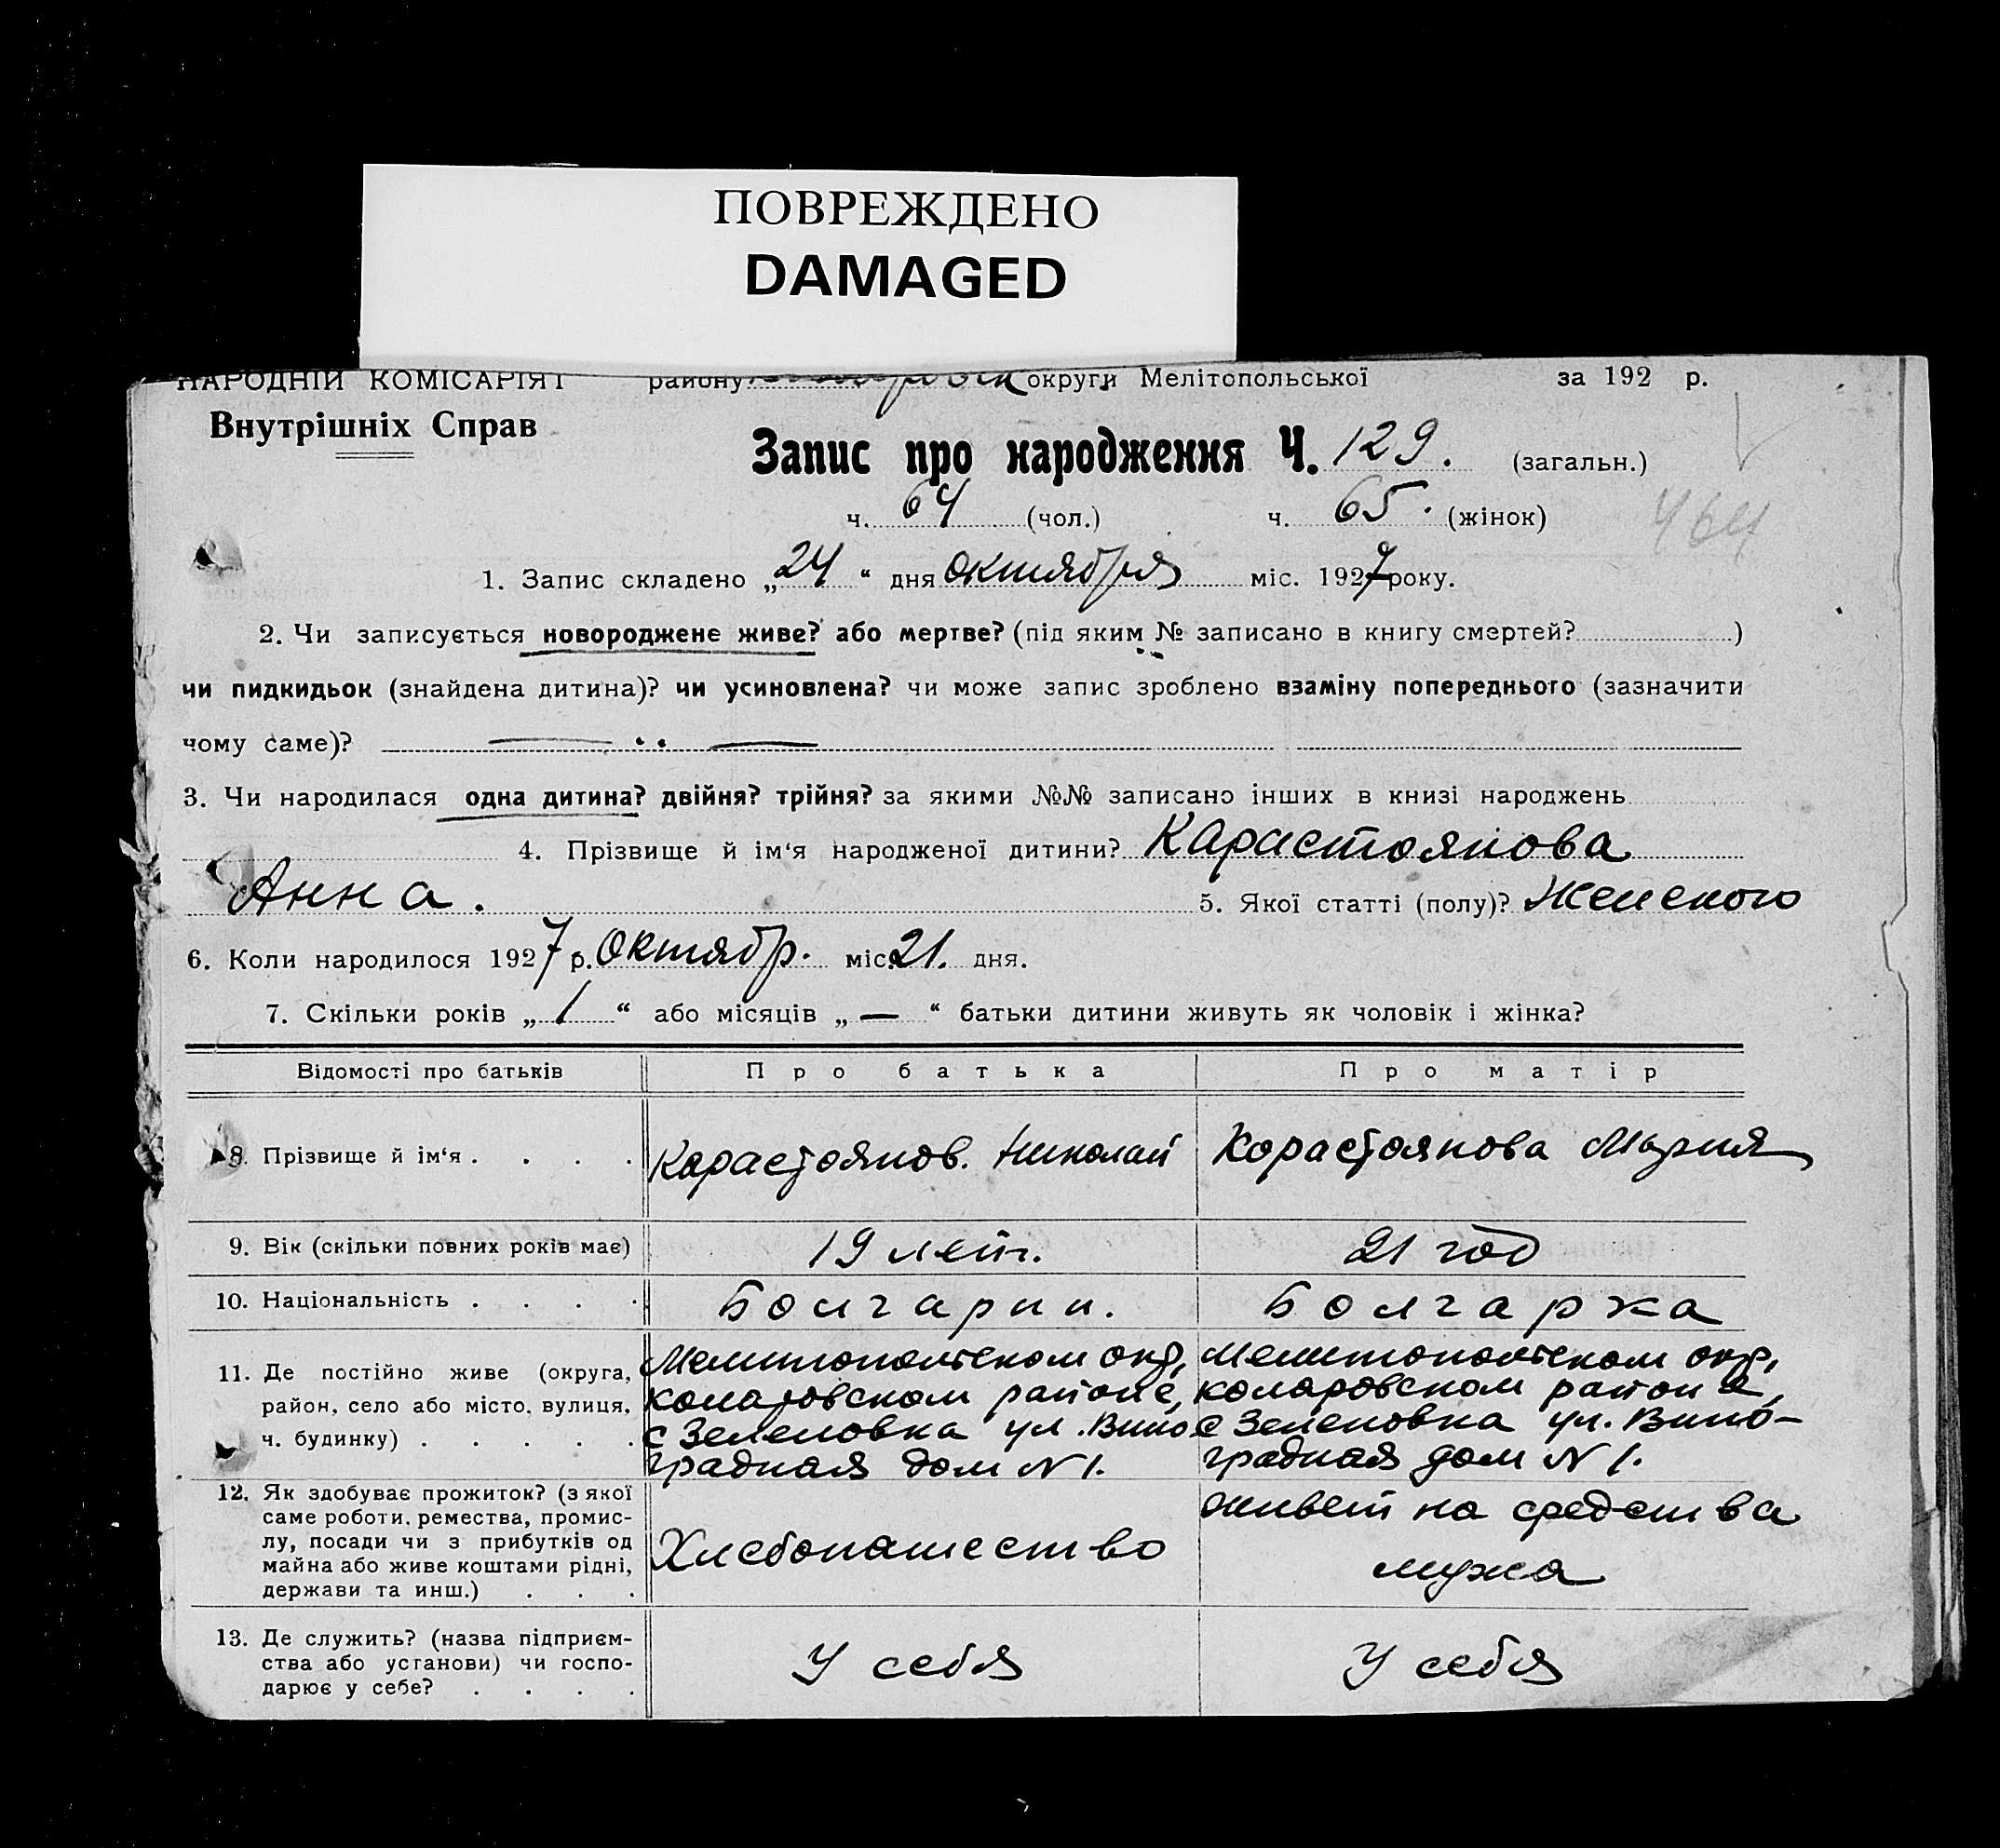 ПОВРЕЖДЕНО
DAMAGED
НАРОДНІЙ КОМІСАРІЯТ району округи Мелітопольської за 192 р.
Внутрішніх Справ
Запис про народження Ч. 129. (загальн.)
ч. 64 (чол.) ч. 65. (жінок)
464
1. Запис складено „24“ дня октября міс. 1927 року.
2. Чи записується новороджене живе? або мертве? (під яким № записано в книгу смертей? )
чи пидкидьок (знайдена дитина)? чи усиновлена? чи може запис зроблено взаміну попереднього (зазначити
чому саме)?
3. Чи народилася одна дитина? двійня? трійня? за якими №№ записано інших в книзі народжень
4. Прізвище й ім‘я народженої дитини? Карастоянова
Анна. 5. Якої статті (полу)? Женского
6. Коли народилося 1927 р. октябр. міс. 21. дня.
7. Скільки років „1“ або місяців „—“ батьки дитини живуть як чоловік і жінка?
Відомості про батьків Про батька Про матір
8. Прізвище й ім‘я . . . . Карастоянов. Николай Карастоянова Мария
9. Вік (скільки повних років має) 19 лет. 21 год
10. Національність . . . . Болгарин. Болгарка
11. Де постійно живе (округа, Мелитопольском окр, Мелитопольском окр,
район, село або місто, вулиця, коларовском районе, коларовском районе,
ч. будинку) . . . . . с Зеленовка ул. Вино с Зеленовка ул. Вино-
градная дом N 1. градная дом N 1.
12. Як здобуває прожиток? (з якої живет на средства
саме роботи, ремества, промис-
лу, посади чи з прибутків од Хлебопашество
майна або живе коштами рідні, мужа
держави та инш.) . . .
13. Де служить? (назва підприєм-
ства або установи) чи госпо- У себя У себя
дарює у себе? . . . .